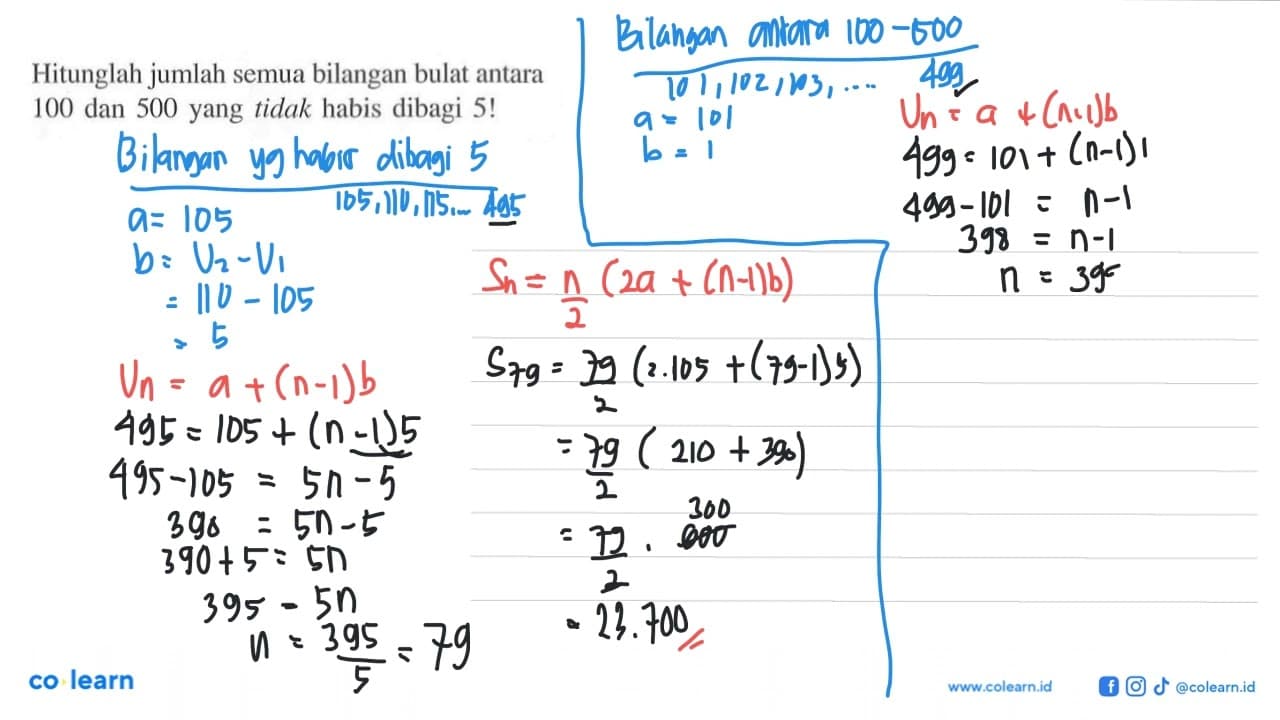 Hitunglah jumlah semua bilangan bulat antara
100 dan 500 yang tidak habis dibagi 5!
Bilangan yg habis dibagi 5
105, 110, 115, ... 495
a = 105
b = U2 - U1
= 110 - 105
= 5
Un = a + (n-1)b
495 = 105 + (n-1)5
495-105 = 5n - 5
390 = 5n - 5
390 + 5 = 5n
395 = 5n
n = 395/5 = 79
Sn = n/2 (2a + (n-1)b)
S79 = 79/2 (2.105 + (79-1)5)
= 79/2 (210 + 390)
= 79/2 . 600 300
= 23.700
Bilangan antara 100 - 500
101, 102, 103, .... 499
a = 101
b = 1
Un = a + (n-1)b
499 = 101 + (n-1)1
499-101 = n-1
398 = n-1
n = 39
co learn
www.colearn.id
@colearn.id